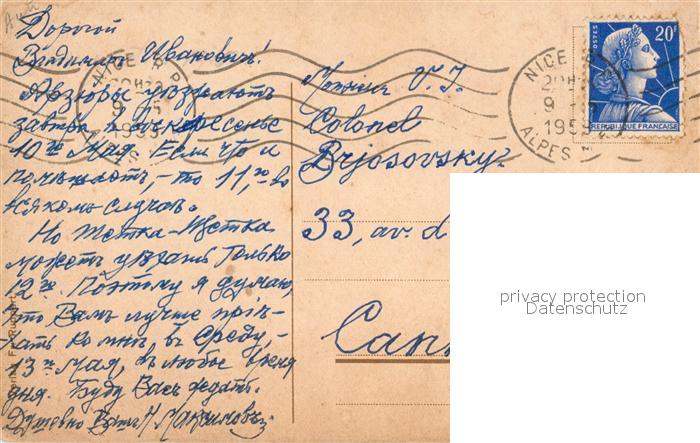 Дорогой
Владимиръ Ивановичъ!
уѣзжаютъ
завтра, въ воскресенье
10го Мая. Если что и
помѣшаетъ, – то 11,го во
всякомъ случаѣ.
Но Тетка-Щетка
можетъ уѣхать только
12го. Поэтому я думаю,
что Вамъ лучше прiѣ-
хать ко мнѣ, въ среду, –
13го Мая, въ любое время
дня. Буду Васъ ждать.
Душевно Вашъ Н Максимовъ.
Monsieur V. J.
Colonel
Brjosovsky.
33, av. d
Cann
NICE
ALPES M
NICE
9
1959
ALPES M
POSTES
20F
REPUBLIQUE FRANÇAISE
privacy protection
Datenschutz